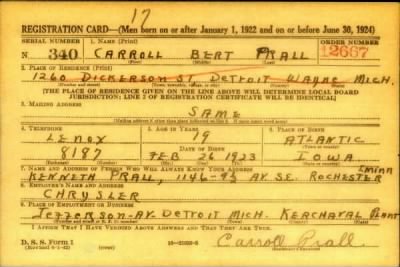 17
REGISTRATION CARD—(Men born on or after January 1, 1922 and on or before June 30, 1924)
SERIAL NUMBER 1. NAME (Print) ORDER NUMBER
N 340 CARROLL BERT PRALL 12667
(First) (Middle) (Last)
2. PLACE OF RESIDENCE (Print)
1260 DICKERSON ST. DETROIT WAYNE MICH.
(Number and street) (Town, township, village, or city) (County) (State)
[THE PLACE OF RESIDENCE GIVEN ON THE LINE ABOVE WILL DETERMINE LOCAL BOARD
JURISDICTION; LINE 2 OF REGISTRATION CERTIFICATE WILL BE IDENTICAL]
3. MAILING ADDRESS
SAME
[Mailing address if other than place indicated on line 2. If same insert word same]
4. TELEPHONE 5. AGE IN YEARS 6. PLACE OF BIRTH
LENOX 19 ATLANTIC
DATE OF BIRTH
8187 FEB 26 1923 IOWA
7. NAME AND ADDRESS OF PERSON WHO WILL ALWAYS KNOW YOUR ADDRESS MINN
KENNETH PRALL, 1146-9½ AV. S.E. ROCHESTER
8. EMPLOYER'S NAME AND ADDRESS
CHRYSLER
9. PLACE OF EMPLOYMENT OR BUSINESS
JEFFERSON-AV. DETROIT MICH. KERCHAVAL PLANT
I AFFIRM THAT I HAVE VERIFIED ABOVE ANSWERS AND THAT THEY ARE TRUE.
D. S. S. Form 1
Carroll Prall